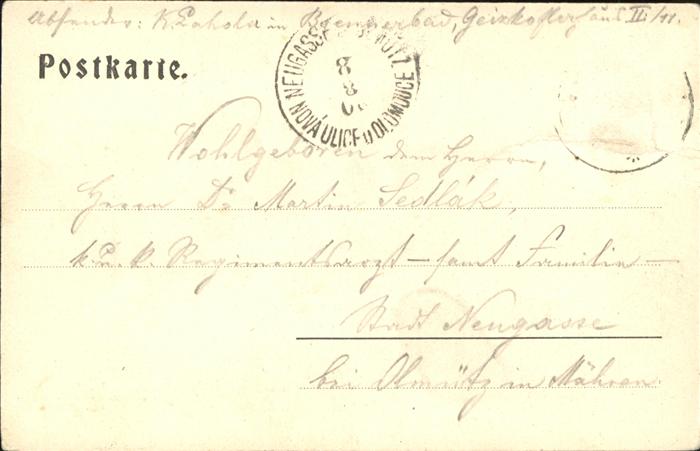 Absender: K. Lahola in Brennerbad, Geizkoflerhaus II./11.
Postkarte.
NEUGASSE
8
8
NOVÁ ULICE u OLOMOUCE
Wohlgeboren dem Herrn,
Herrn Dr Martin Sedlák,
k. u. k. Regimentsarzt – samt Familie –
Stadt Neugasse
bei Olmütz in Mähren.